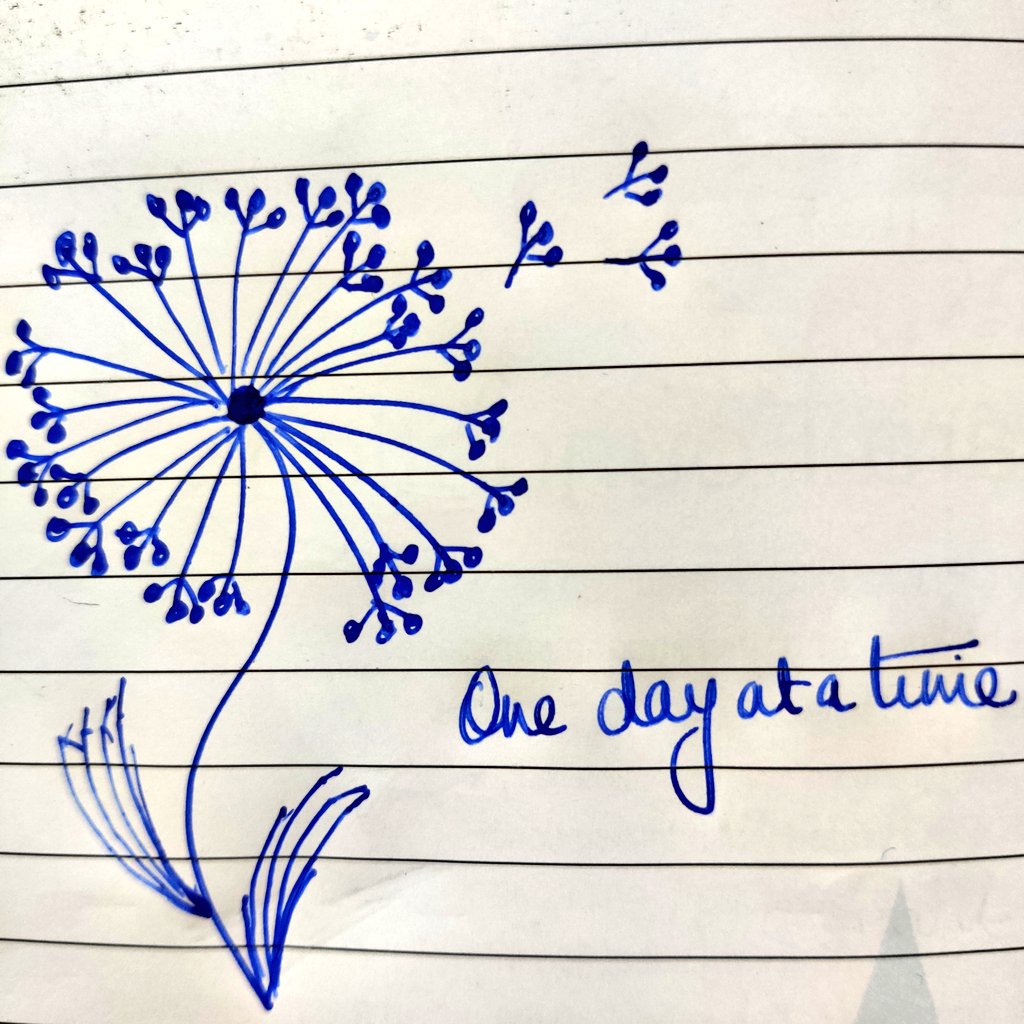 One day at a time